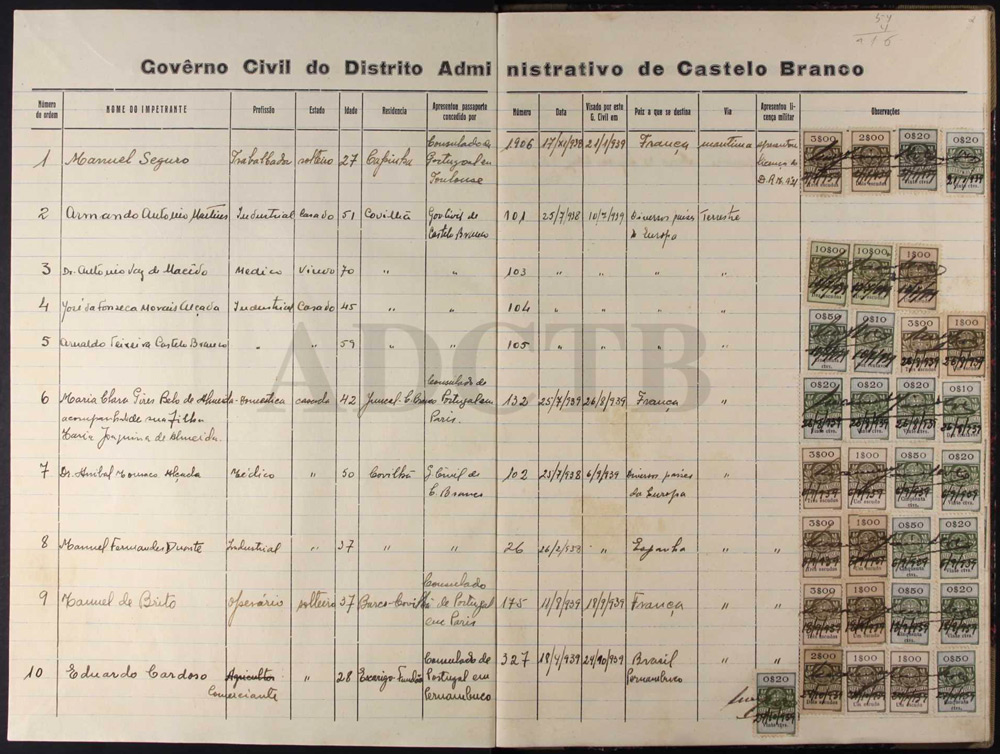 Govêrno Civil do Distrito Administrativo de Castelo Branco
Número do ordem NOME DO IMPETRANTE Profissão Estado Idade Residencia Apresentou passaporte concedido por Número Data Visado por este G. Civil em Paiz a que se destina Via Apresentou licença militar Observações
1 Manuel Seguro Trabalhador solteiro 27 Capinha Consulado de Portugal em Toulouse 1906 17/XI/938 21/1/939 França maritima apresentou licença do D.R.M. nº21
2 Armando António Martins Industrial Casado 51 Covilhã Gov Civil de Castelo Branco 101 25/7/938 Diversos países da Europa Terrestre
3 Dr. António Vaz de Macêdo Medico Viuvo 70 " " 103 " " " "
4 José da Fonseca Morais Alçada Industrial Casado 45 " " 104 " " " "
5 Arnaldo Teixeira Castelo Branco " " 59 " " 105 " " " "
6 Maria Clara Pires Belo de Almeida domestica casada 42 Juncal-C. Branco Consulado de Portugal em Paris. 132 25/7/939 26/8/939 França "
acompanhada de sua filha
Maria Joaquina de Almeida.
7 Dr. Anibal Mousaco Alçada Médico " 50 Covilhã G. Civil de C. Branco 102 25/7/938 6/9/939 Diversos países da Europa "
8 Manuel Fernandes Duarte Industrial " 37 " " 26 26/2/938 " Espanha " "
9 Manuel de Brito operário solteiro 37 Barco-Covilhã Consulado de Portugal em Paris 175 11/8/939 18/9/939 França " "
10 Eduardo Cardoso Agricultor Comerciante " 28 Escarigo-Fundão Consulado de Portugal em Pernambuco 327 18/4/939 24/10/939 Brasil Pernambuco " "
3$00 2$00 0$20 0$20
10$00 10$00 1$00
0$50 0$10 3$00 1$00
0$20 0$20 0$20 0$10
3$00 1$00 0$50 0$20
3$00 1$00 0$50 0$20
3$00 1$00 0$50 0$20
2$00 1$00 1$00 0$50
0$20
ADCTB